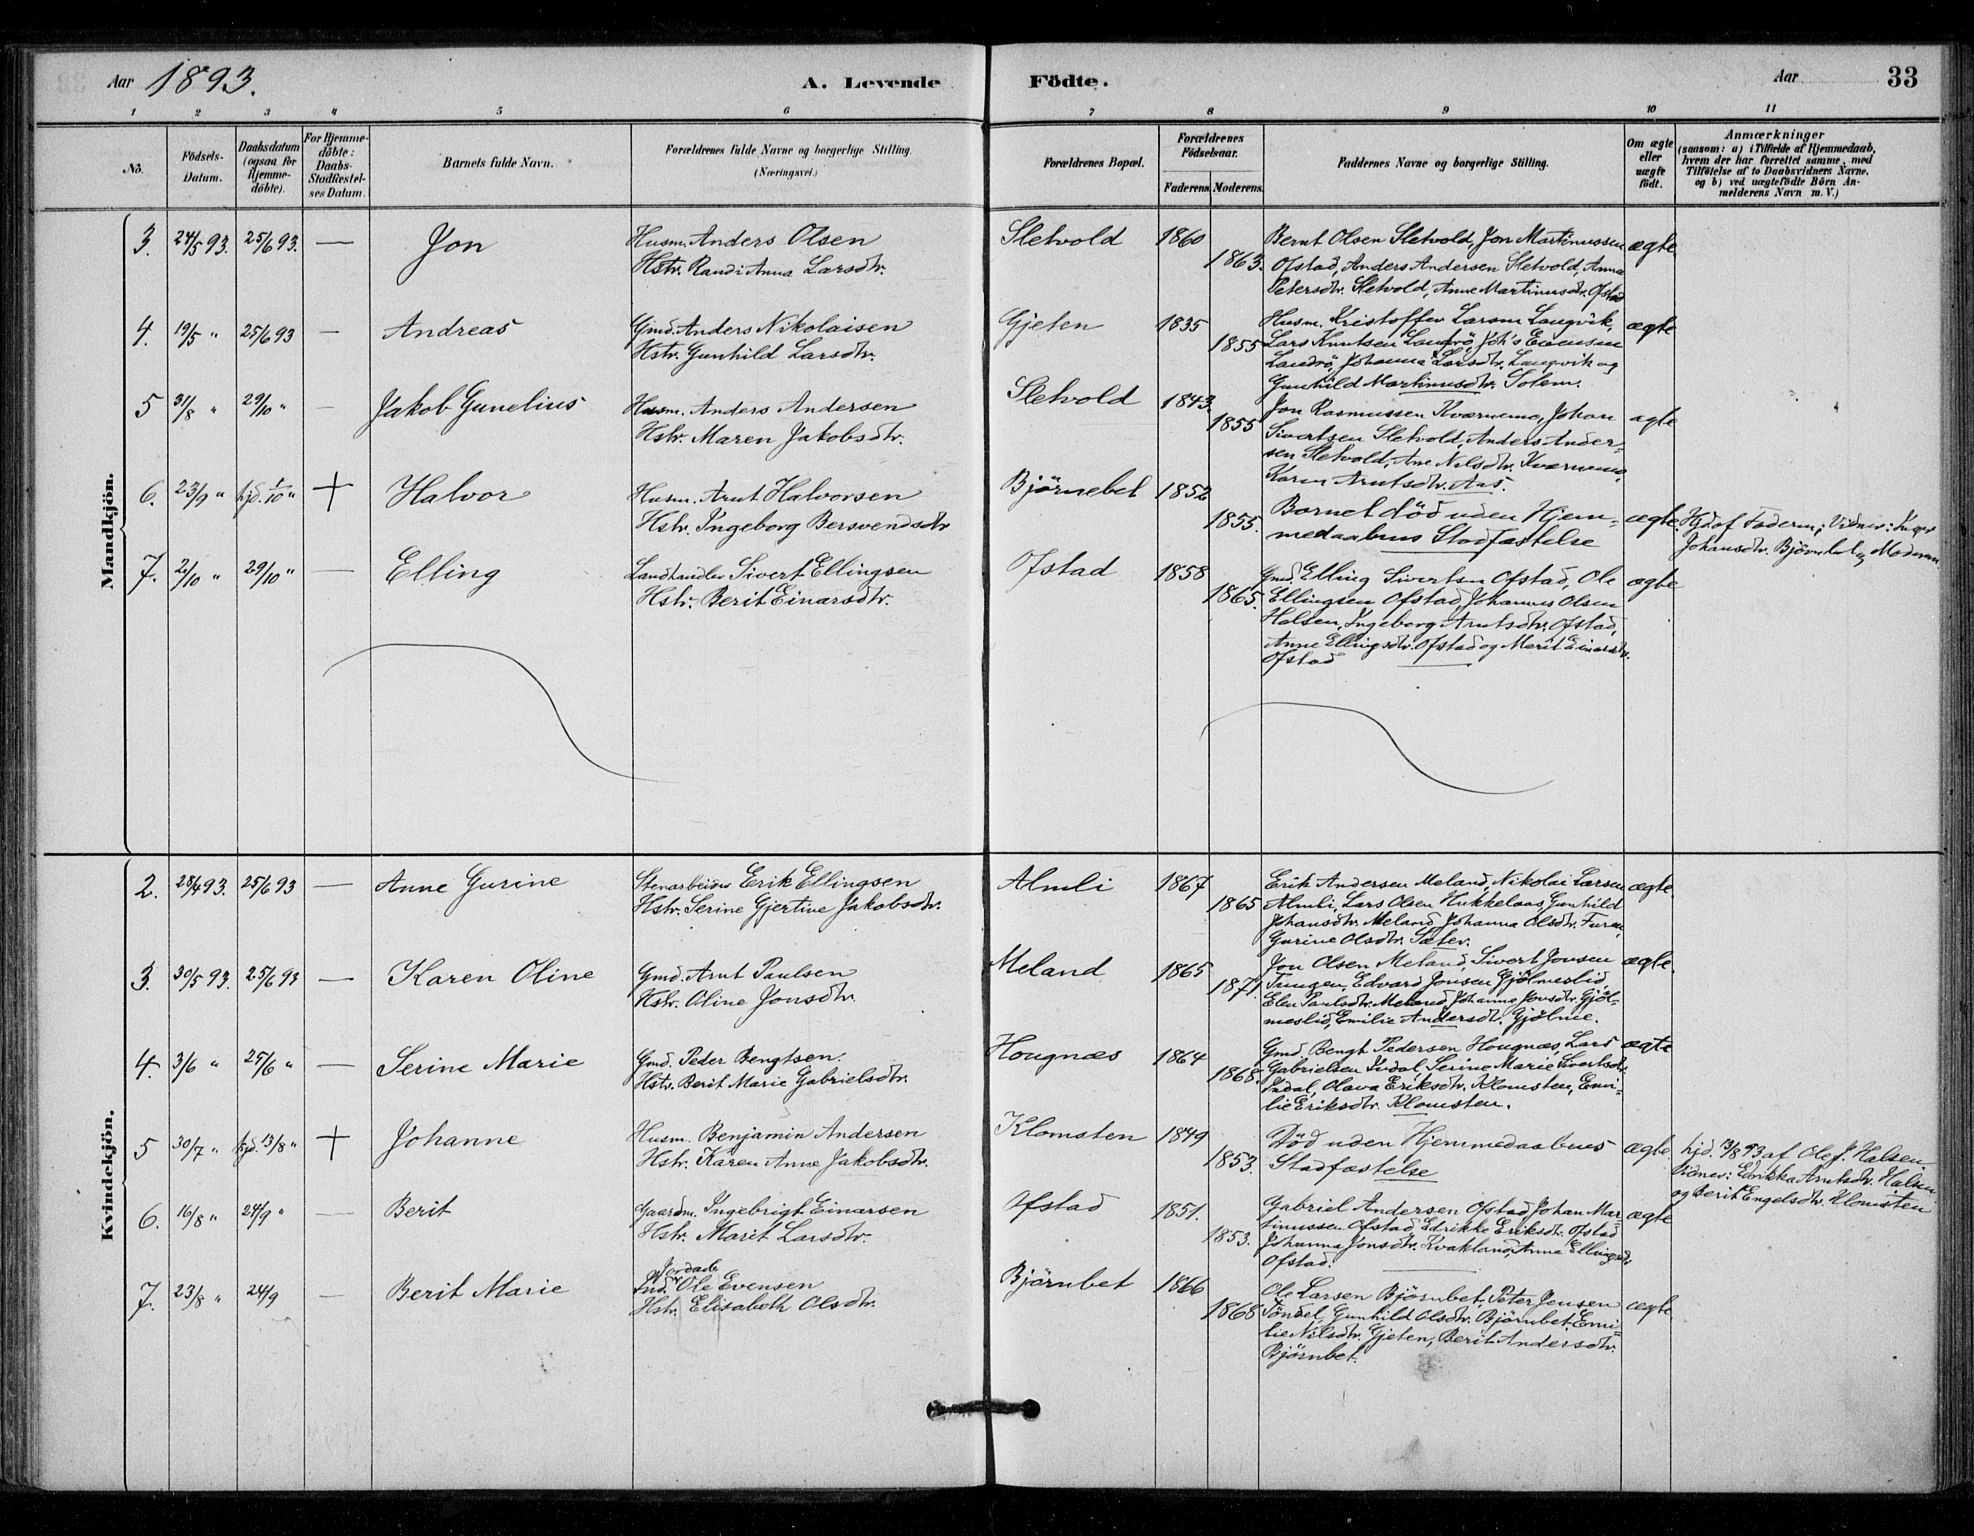 Aar 1893. A. Levende Födte. Aar 33
1 2 3 4 5 6 7 8 9 10 11
No.
Födsels-
Datum.
Daabsdatum
(ogsaa for
Hjemme-
döbte).
For Hjemme-
döbte:
Daabs-
Stadfæstel-
ses Datum.
Barnets fulde Navn.
Forældrenes fulde Navne og borgerlige Stilling.
(Næringsvei.)
Forældrenes Bopæl.
Forældrenes
Födselsaar.
Faderens. Moderens.
Faddernes Navne og borgerlige Stilling.
Om ægte
eller
uægte
födt.
Anmærkninger
(saasom: a) i Tilfælde af Hjemmedaab,
hvem der har forrettet samme, med
Tilföielse af to Daabsvidners Navne.
og b) ved uægtefödte Börn An-
melderens Navn m. V.)
Mandkjön.
3. 24/5 93. 25/6 93. — Jon
Husm. Anders Olsen
Hstr. Randi Anna Larsdtr.
Sletvold 1860
1863.
Bernt Olsen Sletvold, Jon Martinussen
Ofstad, Anders Andersen Sletvold, Anna
Petersdtr. Sletvold, Anne Martinusdtr. Ofstad
ægte.
4. 19/5 " 25/6 93 — Andreas
Gmd. Anders Nikolaisen
Hstr. Gunhild Larsdtr.
Gjeten 1835
1855
Husm. Kristoffer Larsen Langvik,
Lars Knutsen Landrö, Joh's Evensen
Landrö, Johanna Larsdtr. Langvik og
Gunhild Martinusdtr. Solem.
ægte
5 31/8 " 29/10 " — Jakob Gunelius
Husm. Anders Andersen
Hstr. Maren Jakobsdtr.
Sletvold 1843.
1855
Jon Rasmussen Kværnmo, Johan
Sivertsen Sletvold, Anders Ander-
sen Sletvold, Ane Nilsdtr. Kværnmo,
Karen Arntsdtr. Aas.
ægte
6. 23/9 " hjd. 1/10 " + Halvor
Husm. Arnt Halvorsen
Hstr. Ingeborg Bersvendsdtr
Björnebet 1852
1855.
Barnet död uden Hjem-
medaabens Stadfæstelse
ægte.
Hjd af Faderen; Vidner: Inger
Johansdtr. Björnbet og Moderen
7. 2/10 " 29/10 " — Elling
Landhandler Sivert Ellingsen
Hstr. Berit Einarsdtr.
Ofstad 1858
1865.
Gmd. Elling Sivertsen Ofstad, Ole
Ellingsen Ofstad, Johannes Olsen
Halsen, Ingeborg Arntsdtr. Ofstad,
Anne Ellingsdtr. Ofstad og Merit Einarsdtr.
Ofstad
ægte
Kvindekjön.
2. 28/4 93. 25/6 93 — Anne Gurine
Stenarbeider Erik Ellingsen
Hstr. Serine Gjertine Jakobsdtr.
Almli 1867
1865
Erik Andersen Meland, Nikolai Larsen
Almli, Lars Olsen Hukkelaas, Gunhild
Johansdtr. Meland, Johanna Olsdtr.
Gurine Olsdtr. Sæter.
ægte.
3. 30/5 93. 25/6 93 — Karen Oline
Gmd. Arnt Paulsen
Hstr. Oline Jonsdtr.
Meland 1865
1871
Jon Olsen Meland, Sivert Jonsen
Trungen, Edvard Jonsen Gjölmeslid,
Elen Paulsdtr. Meland, Johanna Jonsdtr. Gjöl-
meslid, Emilie Andersdtr. Gjölme.
ægte.
4. 3/6 " 25/6 " — Serine Marie
Gmd. Peder Bengtsen.
Hstr. Berit Marie Gabrielsdtr.
Hougnæs 1864
1868.
Gmd. Bengt Pedersen Hougnæs, Lars
Gabrielsen Indal, Serine Marie Sivertsdtr.
Indal, Olava Eriksdtr. Klomsten, Emi-
lie Eriksdtr. Klomsten.
ægte
5 30/7 " hjd. 13/8 " + Johanne
Husm. Benjamin Andersen
Hstr. Karen Anne Jakobsdtr.
Klomsten 1849
1853.
Död uden Hjemmedaabens
Stadfæstelse
ægte.
hjd. 13/8 93 af Ole J. Halsen
Vidner: Edrikka Arntsdtr. Halsen
og Berit Engelsdtr. Klomsten
6. 16/8 " 24/9 " — Berit
Gaardm. Ingebrigt Einarsen
Hstr. Marit Larsdtr.
Ofstad 1851.
1853.
Gabriel Andersen Ofstad, Johan Mar-
tinussen Ofstad, Edrikke Eriksdtr. Ofstad
Johanna Jonsdtr. Kvakland, Anna Ellingsdtr.
Ofstad.
ægte
7. 23/8 " 24/9 — Berit Marie
Ind. Ole Evensen
Hstr. Elisabeth Olsdtr.
Björnbet 1866
1868
Ole Larsen Björnbet, Peter Jensen
Töndel, Gunhild Olsdtr. Björnbet, Emi-
lie Nilsdtr. Gjeten, Berit Andersdtr.
Björnbet.
ægte